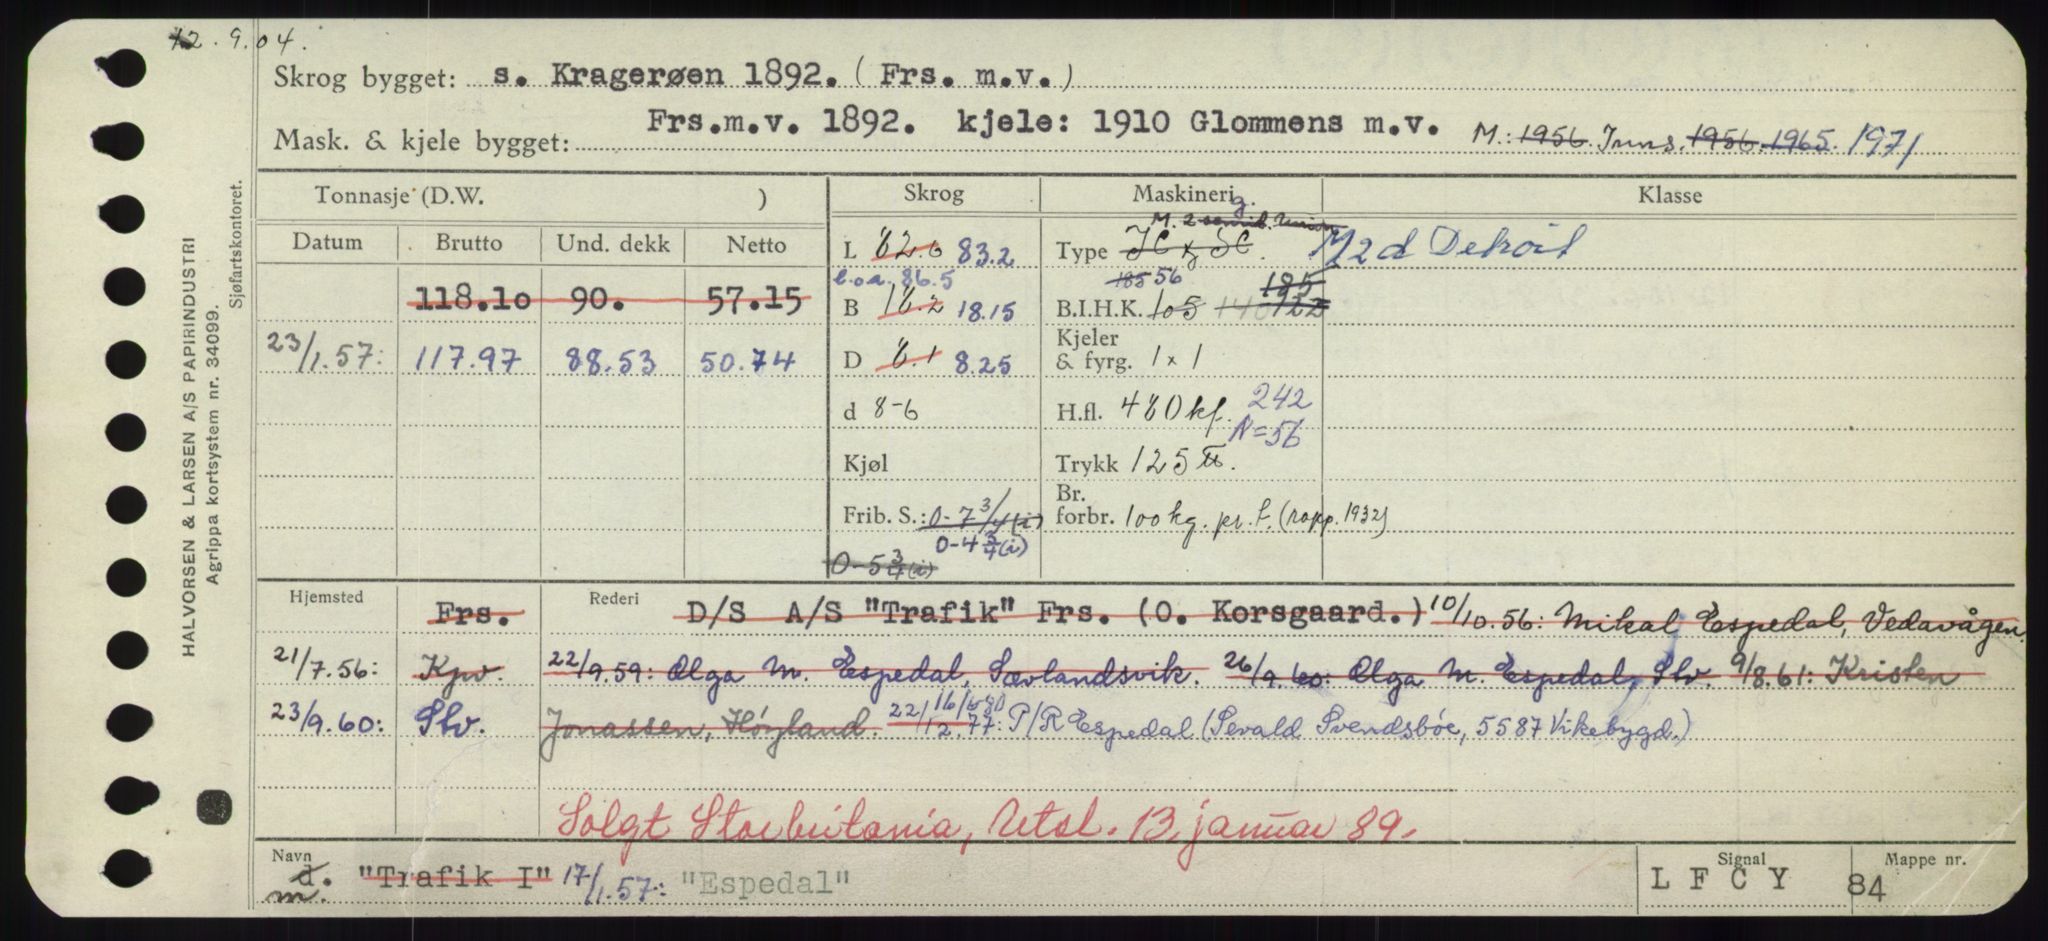 12.9.04.
Skrog bygget: s. Kragerøen 1892. (Frs. m.v.)
Mask. & kjele bygget: Frs.m.v. 1892. kjele: 1910 Glommens m.v. M.: 1956. Inns. 1956. 1965. 1971
Tonnasje (D.W. ) Skrog Maskineri Klasse
Datum Brutto Und. dekk Netto
118.10 90. 57.15
23/1.57: 117.97 88.53 50.74
L 82.0 83.2
l.o.a. 86.5
B 18.2 18.15
D 8.1 8.25
d 8-6
Kjøl
Frib. S.: 0-7 3/4 (i)
0-4 3/4 (i)
0-5 3/4 (i)
M. 2
Type M2d Detroit
185 56 185
B.I.H.K. 105 140 122
Kjeler
& fyrg. 1 x 1
H.fl. 480 kf. 242
N=56
Trykk 125 ℔.
Br.
forbr. 100 kg. pr. t. (rapp. 1932)
Hjemsted Frs. Rederi D/S A/S "Trafik" Frs. (O. Korsgaard.) 10/10.56: Mikal Espedal, Vedavågen.
21/7.56: Kpv. 22/9.59: Olga M. Espedal, Sævlandsvik. 26/9.60: Olga M. Espedal, Slv. 9/8.61: Kristen
23/9.60: Slv. Jonassen, Høyland. 22/12.77: P/R Espedal (Sevald Svendsbøe, 5587 Vikebygd.)
Solgt Storbritania, Utsl. 13. januar 89.
Navn
d. "Trafik I" 17/1.57: "Espedal"
m.
Signal
L F C Y
Mappe nr.
84
HALVORSEN & LARSEN A/S PAPIRINDUSTRI
Agrippa kortsystem nr. 34099.
Sjøfartskontoret.